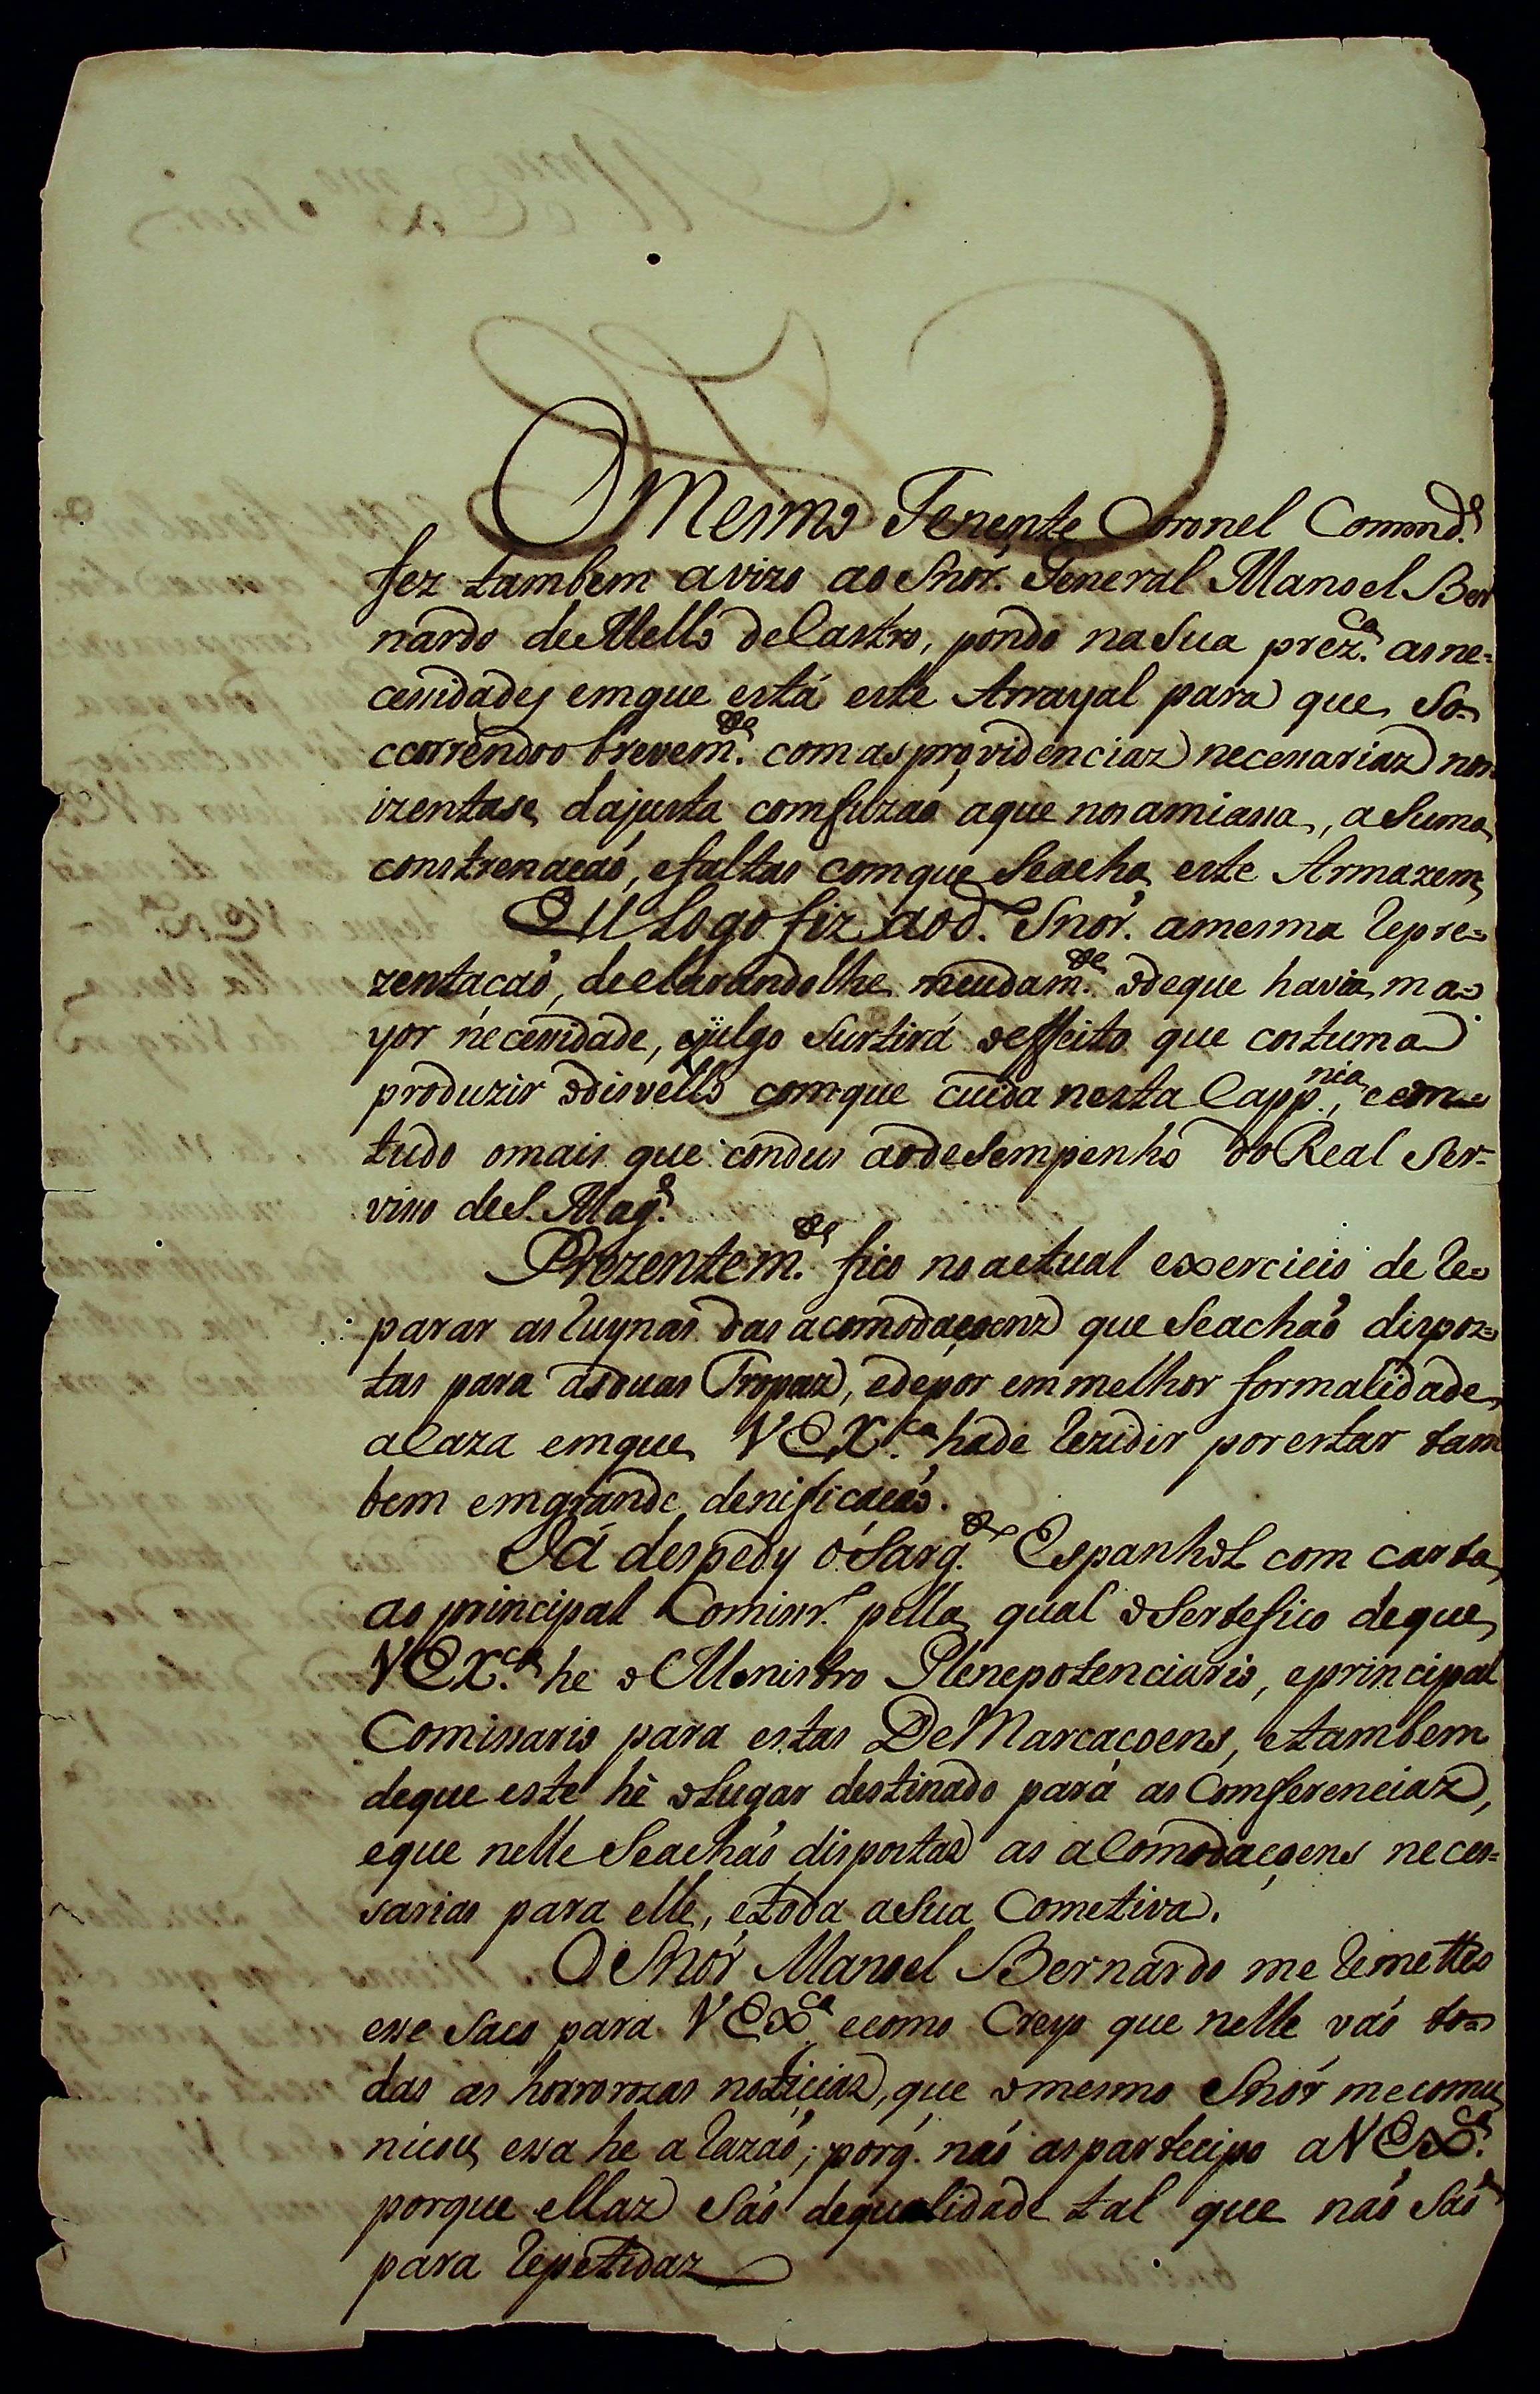 O Mesmo Tenente Coronel Comond.e
fez tambem avizo ao Snór. General Manoel Ber
nardo de Mello de Castro, pondo na Sua prez.ca as ne=
cessidades emque está este Arrayal para que, So=
ccorrendoo brevem.te com as providenciaz necessariaz nos
izentase, dajusta comfuzaõ aque nos amiassa, a Suma
constrenacaõ, efaltas comque Seacha este Armazem,
Eu Logo fiz aod. Snór. amesma repre=
zentacaõ, declarandolhe meudam.te odeque havia, ma=
yor necessidade, ejulgo Surtirá oeffeito que costuma
produzir odisvello comque cuida nesta Capp.nia, com
tudo omais que condus aodeSempenho do Real Ser=
visso deS. Mag.e
Prezentem.te fico no actual exercicio de re=
parar as ruynas das acomodaçoenz que Seachaõ dispoz=
tas para asduas Tropaz, edepor em melhor formalidade,
aCaza emque, VEX.ca hade rezidir por estar tam
bem emgrande, denificacaõ.
Já despedy o Sarg.to Espanhol com carta,
ao principal Comissr.o pella, qual oSertefico deque,
VEX.ca he o Menistro Plenepotenciario, eprincipal
Comissario para estas DeMarcaçoens, etambem
deque este hé oLugar destinado pará as Comferenciaz,
eque nelle Seachaõ dispostas as aComodaçoens neces=
sarias para elle, etoda aSua Cometiva.
O Snór Manoel Bernardo me remetteo
esse Saco para VEX.ca ecomo Creyo que nelle vaõ to=
das as horrorozas noticiaz, que omesmo Snór mecomu
nicou, essa he a razaõ, porq. naõ aspartecipo aVEX.ca
porque ellaz Saõ dequalidade tal que naõ Saõ
para repetidaz